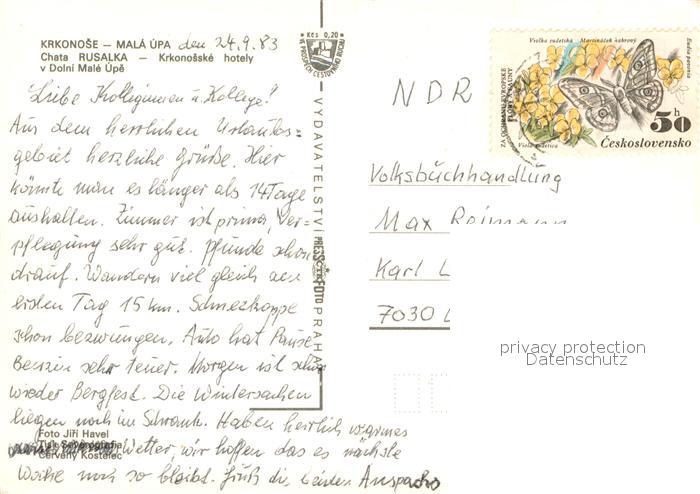 KRKONOŠE – MALÁ ÚPA den 24.9.83
Chata RUSALKA – Krkonošské hotely
v Dolní Malé Úpě
Liebe Kolleginnen u. Kollege!
Aus dem herrlichen Urlaubs-
gebiet herzliche Grüße. Hier
könnte man es länger als 14 Tage
aushalten. Zimmer ist prima, Ver-
pflegung sehr gut. Pfunde schon
drauf. Wandern viel gleich am
ersten Tag 15 km. Schneekoppe
schon bezwungen. Auto hat Pause
Benzin sehr teuer. Morgen ist schon
wieder Bergfest. Die Wintersachen
liegen noch im Schrank. Haben herrlich warmes
Wetter, wir hoffen das es nächste
Woche noch so bleibt. Gruß die beiden
Foto Jiří Havel
Tisk Severografia
Červený Kostelec
Kčs 0,20
VYDAVATELSTVÍ PRESSFOTO PRAHA
Violka sudetská Martináček habrový
Viola sudetica
50 h
Československo
NDR
Volksbuchhandlung
Max Reimann
Karl L
7030 L
privacy protection
Datenschutz